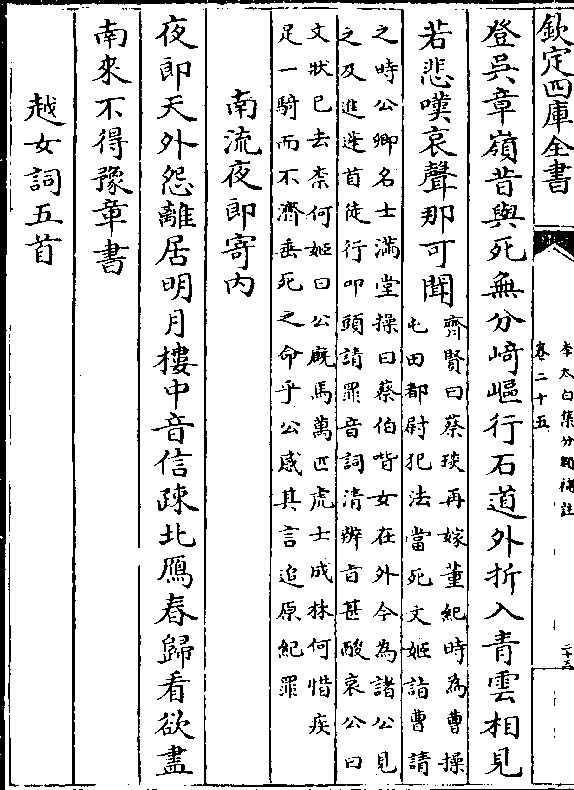 欽定四庫全書
李太白集分類補註
卷二十五
二十三
登吳章嶺昔與死無分﨑嶇行石道外折入青雲相見
若悲嘆哀聲那可聞
齊賢曰蔡琰再嫁董紀時為曹操
屯田都尉犯法當死文姬詣曹請
之時公卿名士滿堂操曰蔡伯喈女在外今為諸公見
之及進蓬首徒行叩頭請罪音詞清辯㫖甚酸哀公曰
文狀已去柰何姬曰公廐馬萬匹虎士成林何惜疾
足一騎而不濟垂死之命乎公感其言追原紀罪
南流夜郎寄内
夜郎天外怨離居明月樓中音信疎北鴈春歸看欲盡
南來不得豫章書
越女詞五首